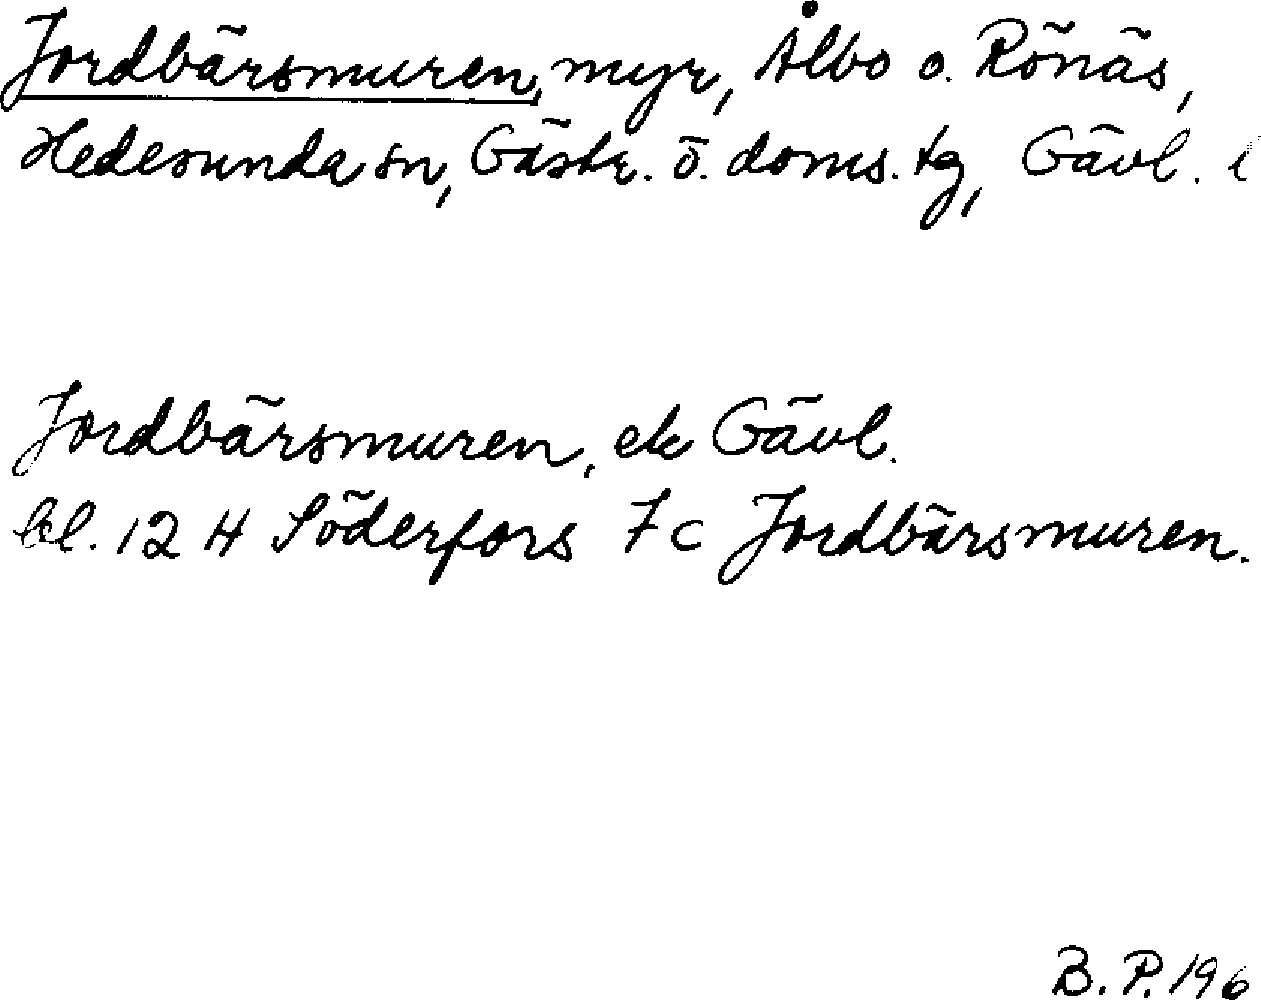 Jordbärsmuren, myr, Ålbo o. Rönäs,
Hedesunda sn, Gästr. ö. doms. tg, Gävl. l
Jordbärsmuren, ek Gävl.
bl. 12 H Söderfors 7 c Jordbärsmuren.
B. P. 196